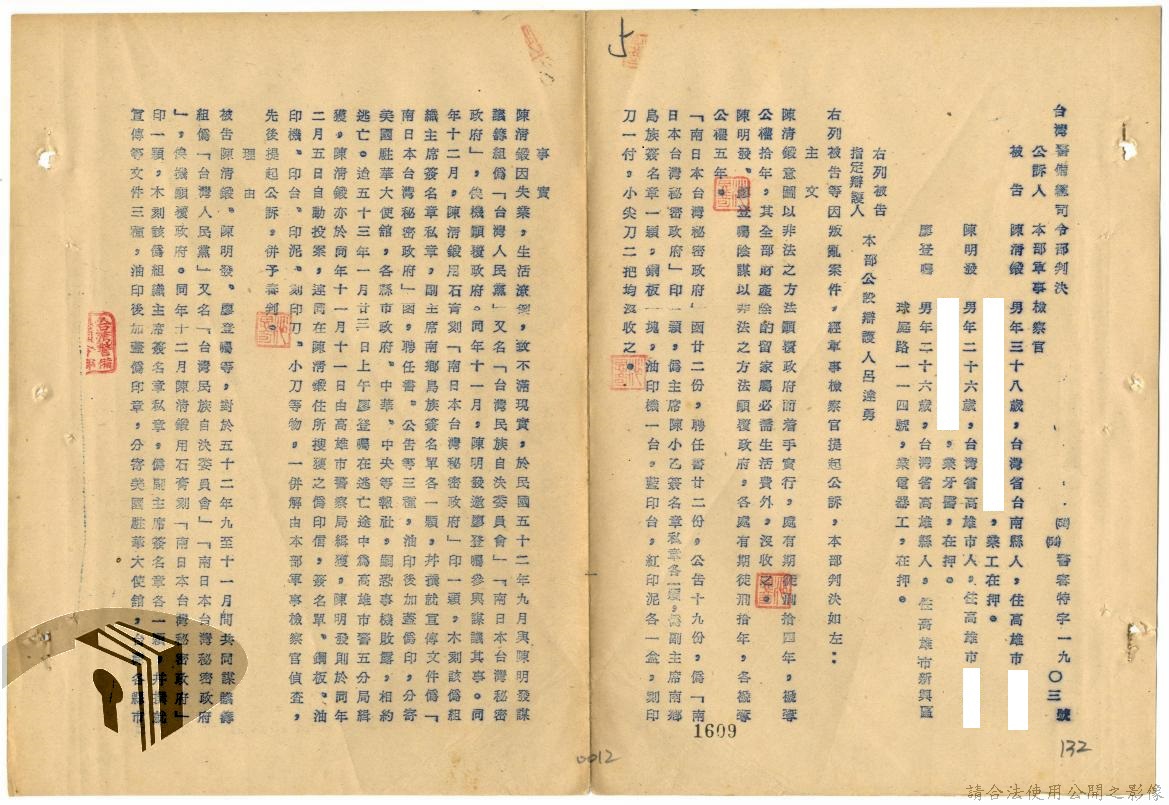 台灣警備總司令部判決
警審特字一九〇三號
公訴人 本部軍事檢察官
被告 陳清鍛 男年三十八歲,台灣省台南縣人,住高雄市
,業工在押。
陳明發 男年二十六歲,台灣省高雄市人,住高雄市
,業牙醫,在押。
廖登囑 男年二十六歲,台灣省高雄縣人,住高雄市新興區
球庭路一一四號,業電器工,在押。
右列被告
指定辯護人 本部公設辯護人呂達勇
右列被告等因叛亂案件,經軍事檢察官提起公訴,本部判決如左:
主文
陳清鍛意圖以非法之方法顛覆政府而着手實行,處有期徒刑拾四年,褫奪
公權拾年,其全部財產除酌留家屬必需生活費外,沒收之。
陳明發、廖登囑陰謀以非法之方法顛覆政府,各處有期徒刑拾年,各褫奪
公權五年。
「南日本台灣秘密政府」函廿二份,聘任書廿二份,公告十九份,僞「南
日本台灣秘密政府」印一顆,僞主席陳小乙簽名章私章各一顆,僞副主席南鄉
烏族簽名章一顆,鋼板一塊,油印機一台,藍印台,紅印泥各一盒,刻印
刀一付,小尖刀二把均沒收之。
事實
陳清鍛因失業,生活潦倒,致不滿現實,於民國五十二年九月與陳明發謀
議籌組僞「台灣人民黨」又名「台灣民族自決委員會」「南日本台灣秘密
政府」,俟機顛覆政府。同年十一月,陳明發邀廖登囑參與謀議其事。同
年十二月,陳清鍛用石膏刻「南日本台灣秘密政府」印一顆,木刻該僞組
織主席簽名章私章,副主席南鄉烏族簽名單各一顆,并撰就宣傳文件僞「
南日本台灣秘密政府」函,聘任書。公告等三種,油印後加蓋僞印,分寄
美國駐華大使舘,各縣市政府。中華。中央等報社,嗣恐事機敗露,相約
逃亡。迨五十三年一月廿三日上午廖登囑在逃亡途中為高雄市警五分局緝
獲,陳清鍛亦於同年十一月十一日由高雄市警察局緝獲,陳明發則於同年
二月五日自動投案,連同在陳清鍛住所搜獲之僞印信,簽名單。鋼板、油
印機、印台、印泥、刻印刀。小刀等物,一併解由本部軍事檢察官偵查,
先後提起公訴,併予審判。
理由
被告陳清鍛。陳明發。廖登囑等,對於五十二年九至十一月間共同謀議籌
組僞「台灣人民黨」又名「台灣民族自決委員會」「南日本台灣秘密政府
」,俟機顛覆政府。同年十二月陳清鍛用石膏刻「南日本台灣秘密政府」
印一顆,木刻該僞組織主席簽名章私章,僞副主席簽名章各一顆,并撰就
宣傳等文件三種,油印後加蓋僞印章,分寄美國駐華大使舘,台灣各縣市
1609
0012
132
請合法使用公開之影像